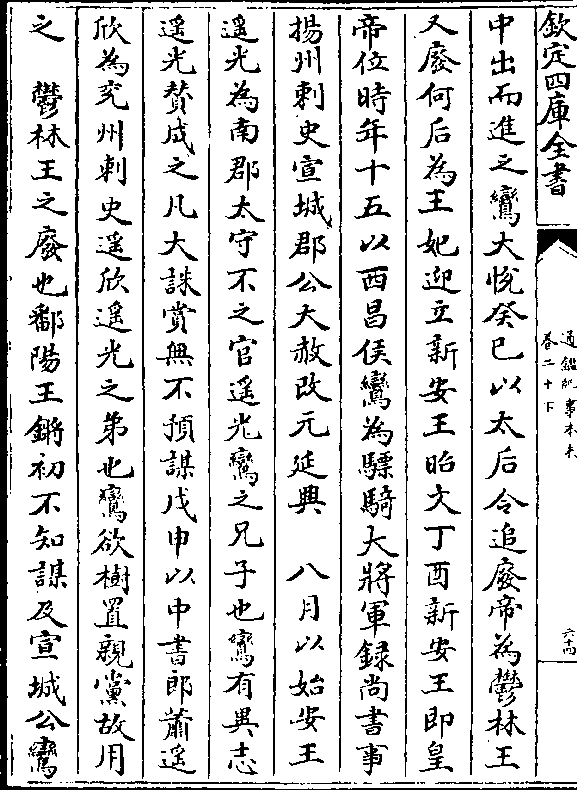 欽定四庫全書
通鑑紀事本末
卷二十下
六十四
中出而進之鸞大悅癸巳以太后令追廢帝為鬱林王
又廢何后為王妃迎立新安王昭文丁酉新安王即皇
帝位時年十五以西昌侯鸞為驃騎大將軍録尚書事
揚州刺史宣城郡公大赦改元延興　八月以始安王
遥光為南郡太守不之官遥光鸞之兄子也鸞有異志
遥光賛成之凡大誅賞無不預謀戊申以中書郎蕭遥
欣為兖州刺史遥欣遥光之弟也鸞欲樹置親黨故用
之　鬱林王之廢也鄱陽王鏘初不知謀及宣城公鸞